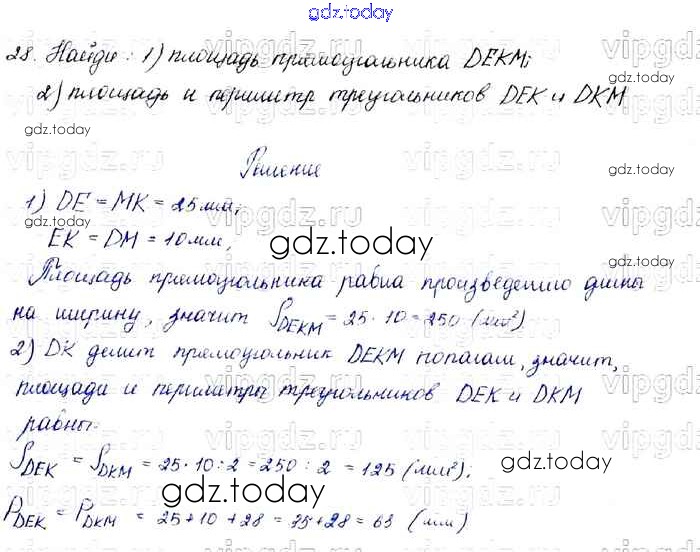 gdz.today
28. Найди: 1) площадь прямоугольника DEKM;
2) площадь и периметр треугольников DEK и DKM
gdz.today
gdz.today
Решение
1) DE = MK = 25 мм;
EK = DM = 10 мм,
gdz.today
Площадь прямоугольника равна произведению длины
на ширину, значит S DEKM = 25 · 10 = 250 (мм²)
2) DK делит прямоугольник DEKM пополам, значит,
площади и периметры треугольников DEK и DKM
равны.
S DEK = S DKM = 25 · 10 : 2 = 250 : 2 = 125 (мм²);
gdz.today
gdz.today
P DEK = P DKM = 25 + 10 + 28 = 35 + 28 = 63 (мм)